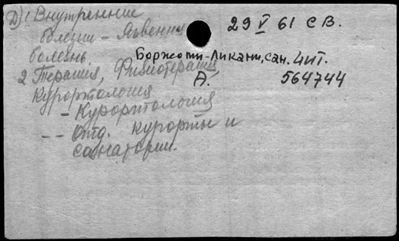 Д) 1 Внутренние
болезни – Язвенная
болезнь.
2 Терапия, Физиотерапия,
Курортология
– Курортология
– – Отд. курорты и
санатории.
29 V 61 СВ.
Боржоми-Ликани, сан. 4 ит.
А.
564744